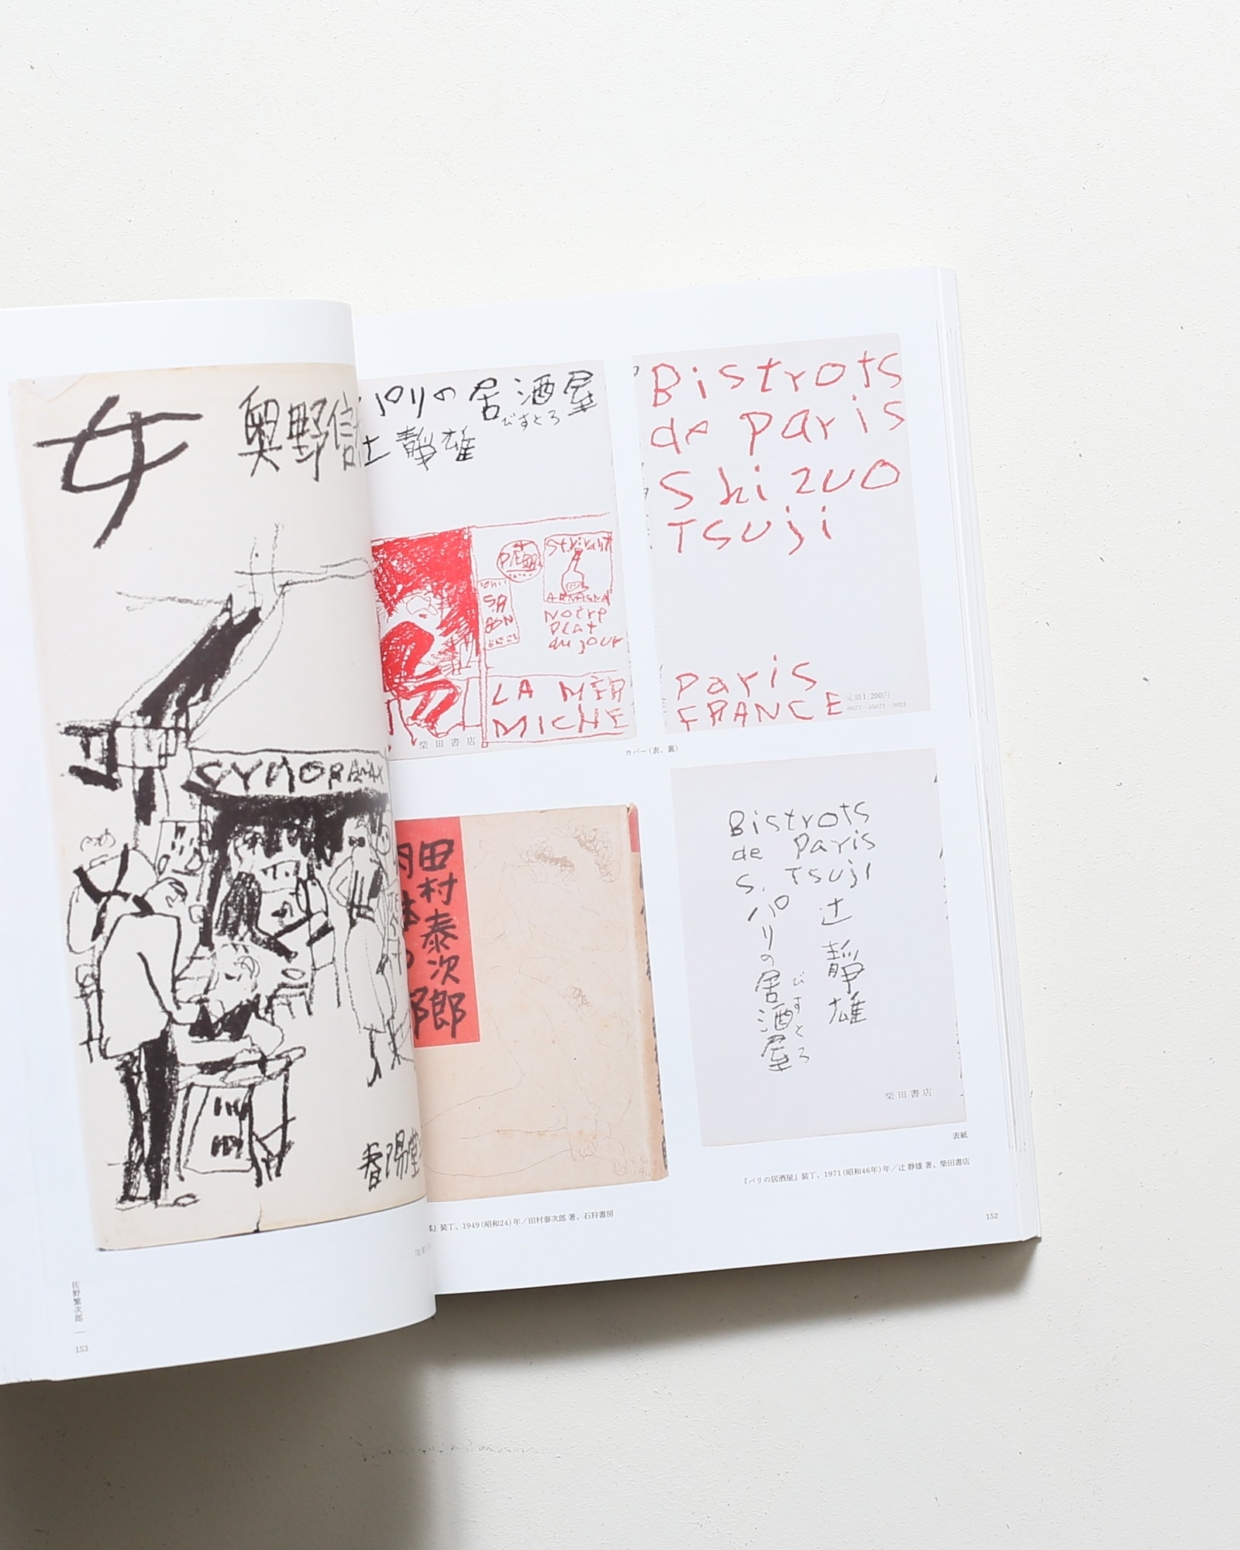 女
奥野信
パリの居酒屋
びすとろ
辻 静雄
Notre
PLAT
du jour
LA MÈR
MICHE
柴田書店
Bistrots
de paris
Shizuo
Tsuji
Paris
FRANCE
定価1,200円
カバー(表、裏)
春陽堂
田村泰次郎
Bistrots
de Paris
S. Tsuji
辻 静雄
パリの居酒屋
びすとろ
柴田書店
表紙
『パリの居酒屋』装丁、1971(昭和46年)年/辻 静雄 著、柴田書店
』装丁、1949(昭和24)年/田村泰次郎 著、石狩書房
152
佐野繁次郎
153